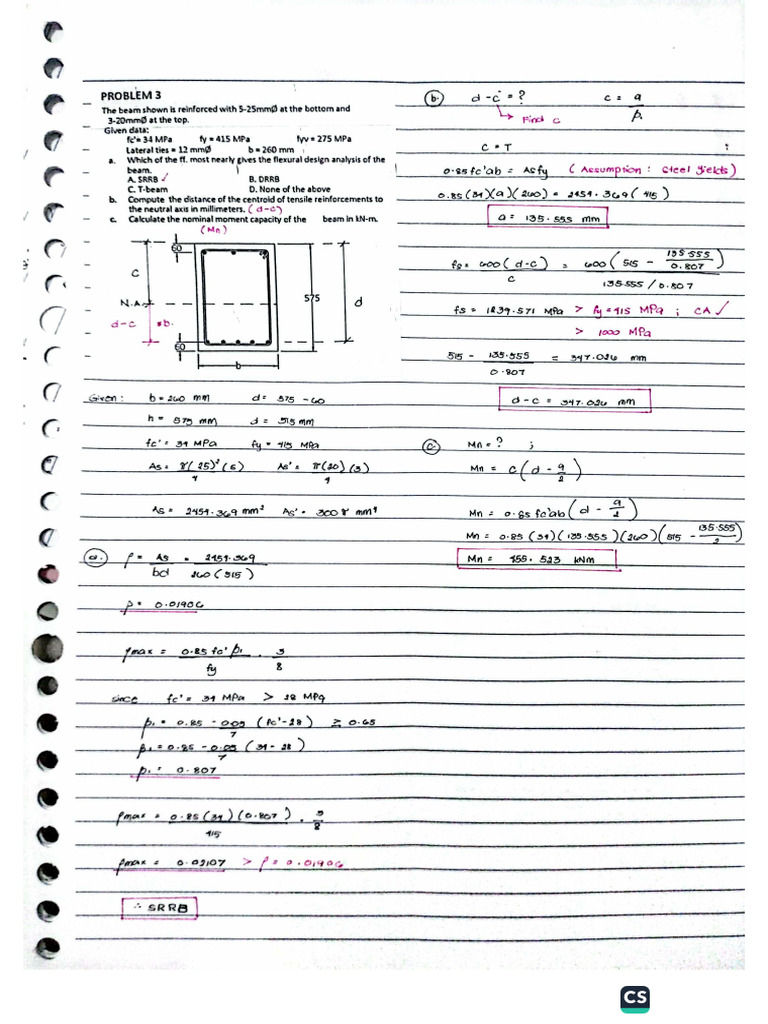 PROBLEM 3
The beam shown is reinforced with 5-25mmØ at the bottom and
3-20mmØ at the top.
Given data:
fc'= 34 MPa fy = 415 MPa fyv = 275 MPa
Lateral ties = 12 mmØ b = 260 mm
a. Which of the ff. most nearly gives the flexural design analysis of the
beam.
A. SRRB ✓ B. DRRB
C. T-beam D. None of the above
b. Compute the distance of the centroid of tensile reinforcements to
the neutral axis in millimeters. (d-c)
c. Calculate the nominal moment capacity of the beam in kN-m.
(Mn)
60
C
N.A.
575
d
d-c
b.
60
b
Given: b = 260 mm d = 575 - 60
h = 575 mm d = 515 mm
fc' = 34 MPa fy = 415 MPa
As = π(25)²(5)/4 As' = π(20)(3)/4
As = 2454.369 mm² As' = 300π mm²
a. ρ = As/bd = 2454.369/260(515)
ρ = 0.01906
ρmax = 0.85 fc' β₁/fy · 3/8
since fc' = 34 MPa > 28 MPa
β₁ = 0.85 - 0.05/7 (fc' - 28) ≥ 0.65
β₁ = 0.85 - 0.05/7 (34 - 28)
β₁ = 0.807
ρmax = 0.85(34)(0.807)/415 · 3/8
ρmax = 0.02107 > ρ = 0.01906
∴ SRRB
b. d - c = ? c = a/β₁
↳ Find c
C = T ;
0.85 fc'ab = As fy (Assumption: Steel yields)
0.85(34)(a)(260) = 2454.369(415)
a = 135.555 mm
fs = 600(d-c)/c = 600(515 - 135.555/0.807)/135.555/0.807
fs = 1239.571 MPa > fy = 415 MPa ; CA ✓
> 1000 MPa
515 - 135.555/0.807 = 347.026 mm
d - c = 347.026 mm
c. Mn = ? ;
Mn = C(d - a/2)
Mn = 0.85 fc'ab(d - a/2)
Mn = 0.85(34)(135.555)(260)(515 - 135.555/2)
Mn = 455.523 kNm
CS